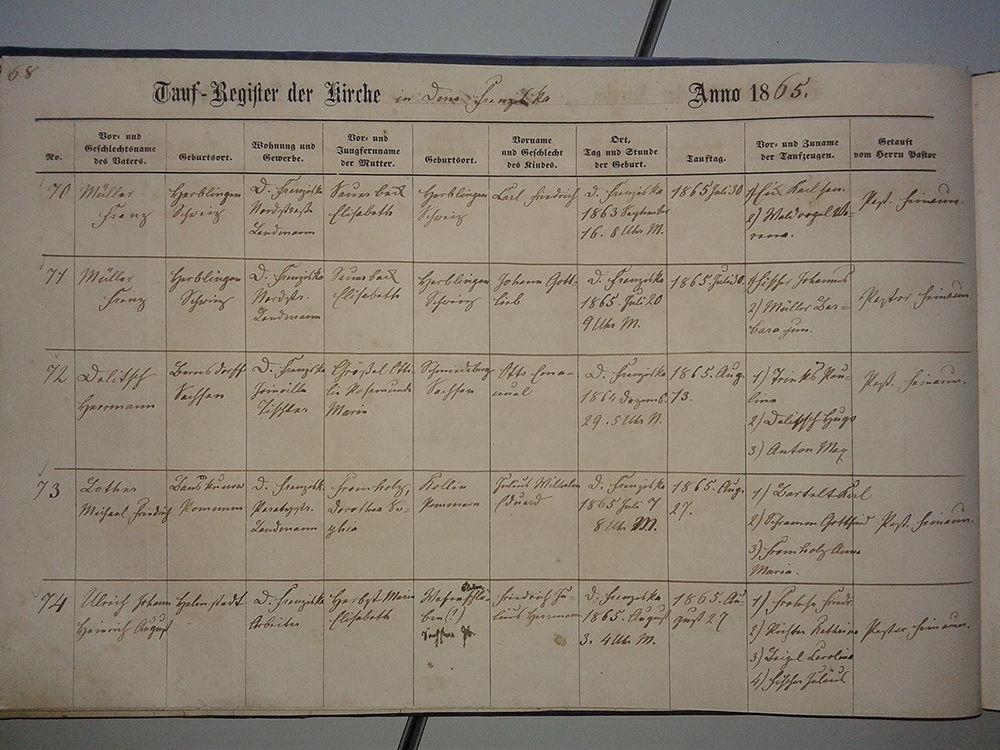 68
Tauf-Register der Kirche in Dona Franziska Anno 1865.
No.
Vor- und
Geschlechtsname
des Vaters.
Geburtsort.
Wohnung und
Gewerbe.
Vor- und
Jungfernname
der Mutter.
Geburtsort.
Vorname
und Geschlecht
des Kindes.
Ort,
Tag und Stunde
der Geburt.
Tauftag.
Vor- und Zuname
der Taufzeugen.
Getauft
vom Herrn Pastor
70
Müller
Franz
Herblingen
Schweiz
D. Franziska
Nordstraße
Landmann
Elisabeth
Herblingen
Schweiz
Carl Friedrich
D. Franziska
1863 September
16. 8 Uhr M.
1865 Juli 30
Karl sen.
2) Waldvogel Ve-
rena.
Past.
71
Müller
Franz
Herblingen
Schweiz
D. Franziska
Nordstr.
Landmann
Elisabeth
Herblingen
Schweiz
Johann Gott-
lieb
D. Franziska
1865. Juli 20
9 Uhr M.
1865. Juli 30.
Johannes
2) Müller Bar-
bara jun.
Pastor
72
Delitsch
Herrmann
Bernsdorf
Sachsen
D. Franziska
Joinville
Tischler
Otti-
lie Rosamunde
Maria
Sachsen
Otto Ema-
nuel
D. Franziska
1864 Dezemb.
29. 5 Uhr N.
1865. Aug.
13.
1) Pau-
line
2) Delitsch Hugo
3) Anton Max
Past.
73
Michael Friedrich
Pommern
D. Franziska
Landmann
Fromholz,
Dorothea So-
phia
Kollin
Pommern
Julius Wilhelm
Eduard
D. Franziska
1865 Juli 7
8 Uhr M.
1865. Aug.
27.
1) Bartelt Karl
2) Schramm Gottfried
3) Fromholz Anna
Maria.
Past.
74
Ulrich Johann
Heinrich August
Helmstadt
D. Franziska
Arbeiter
Herbst Maria
Elisabeth
ben (?)
Friedrich Ju-
lius Herrmann
D. Franziska
1865. August
3. 4 Uhr M.
1865. Au-
gust 27
1) Friedr.
2) Katharina
3) Carolina
4) Fischer Julius
Pastor